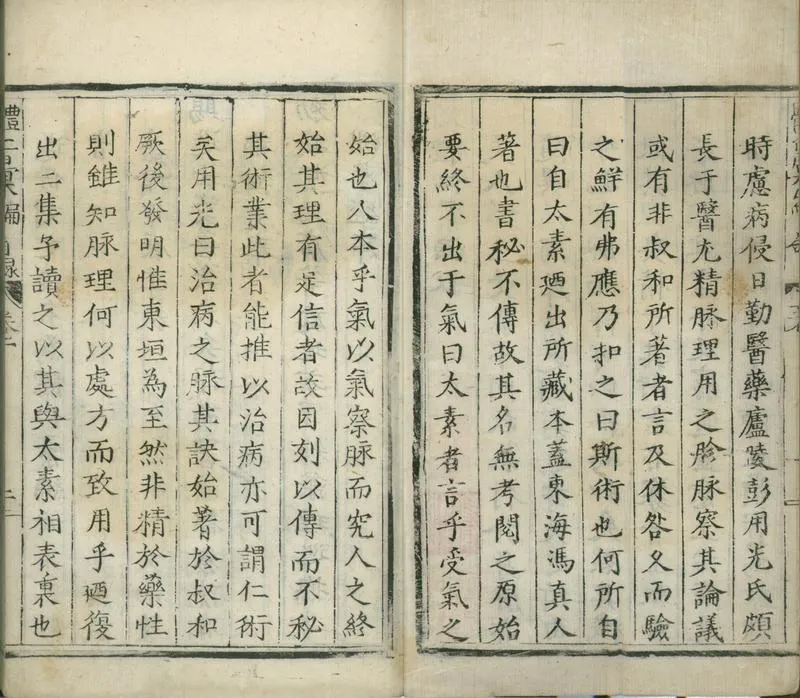 時慮病侵日勤醫藥廬陵彭用光氏頗
長于醫尤精脉理用之胗脉察其論議
或有非叔和所著者言及休咎久而驗
之鮮有弗應乃扣之曰斯術也何所自
曰自太素廼出所藏本蓋東海馮真人
著也書秘不傳故其名無考閱之原始
要終不出于氣曰太素者言乎受氣之
始也人本乎氣以氣察脉而究人之終
始其理有足信者故因刻以傳而不秘
其術業此者能推以治病亦可謂仁術
矣用光曰治病之脉其訣始著於叔和
厥後發明惟東垣為至然非精於藥性
則雖知脉理何以處方而致用乎廼復
出二集予讀之以其與太素相表裏也